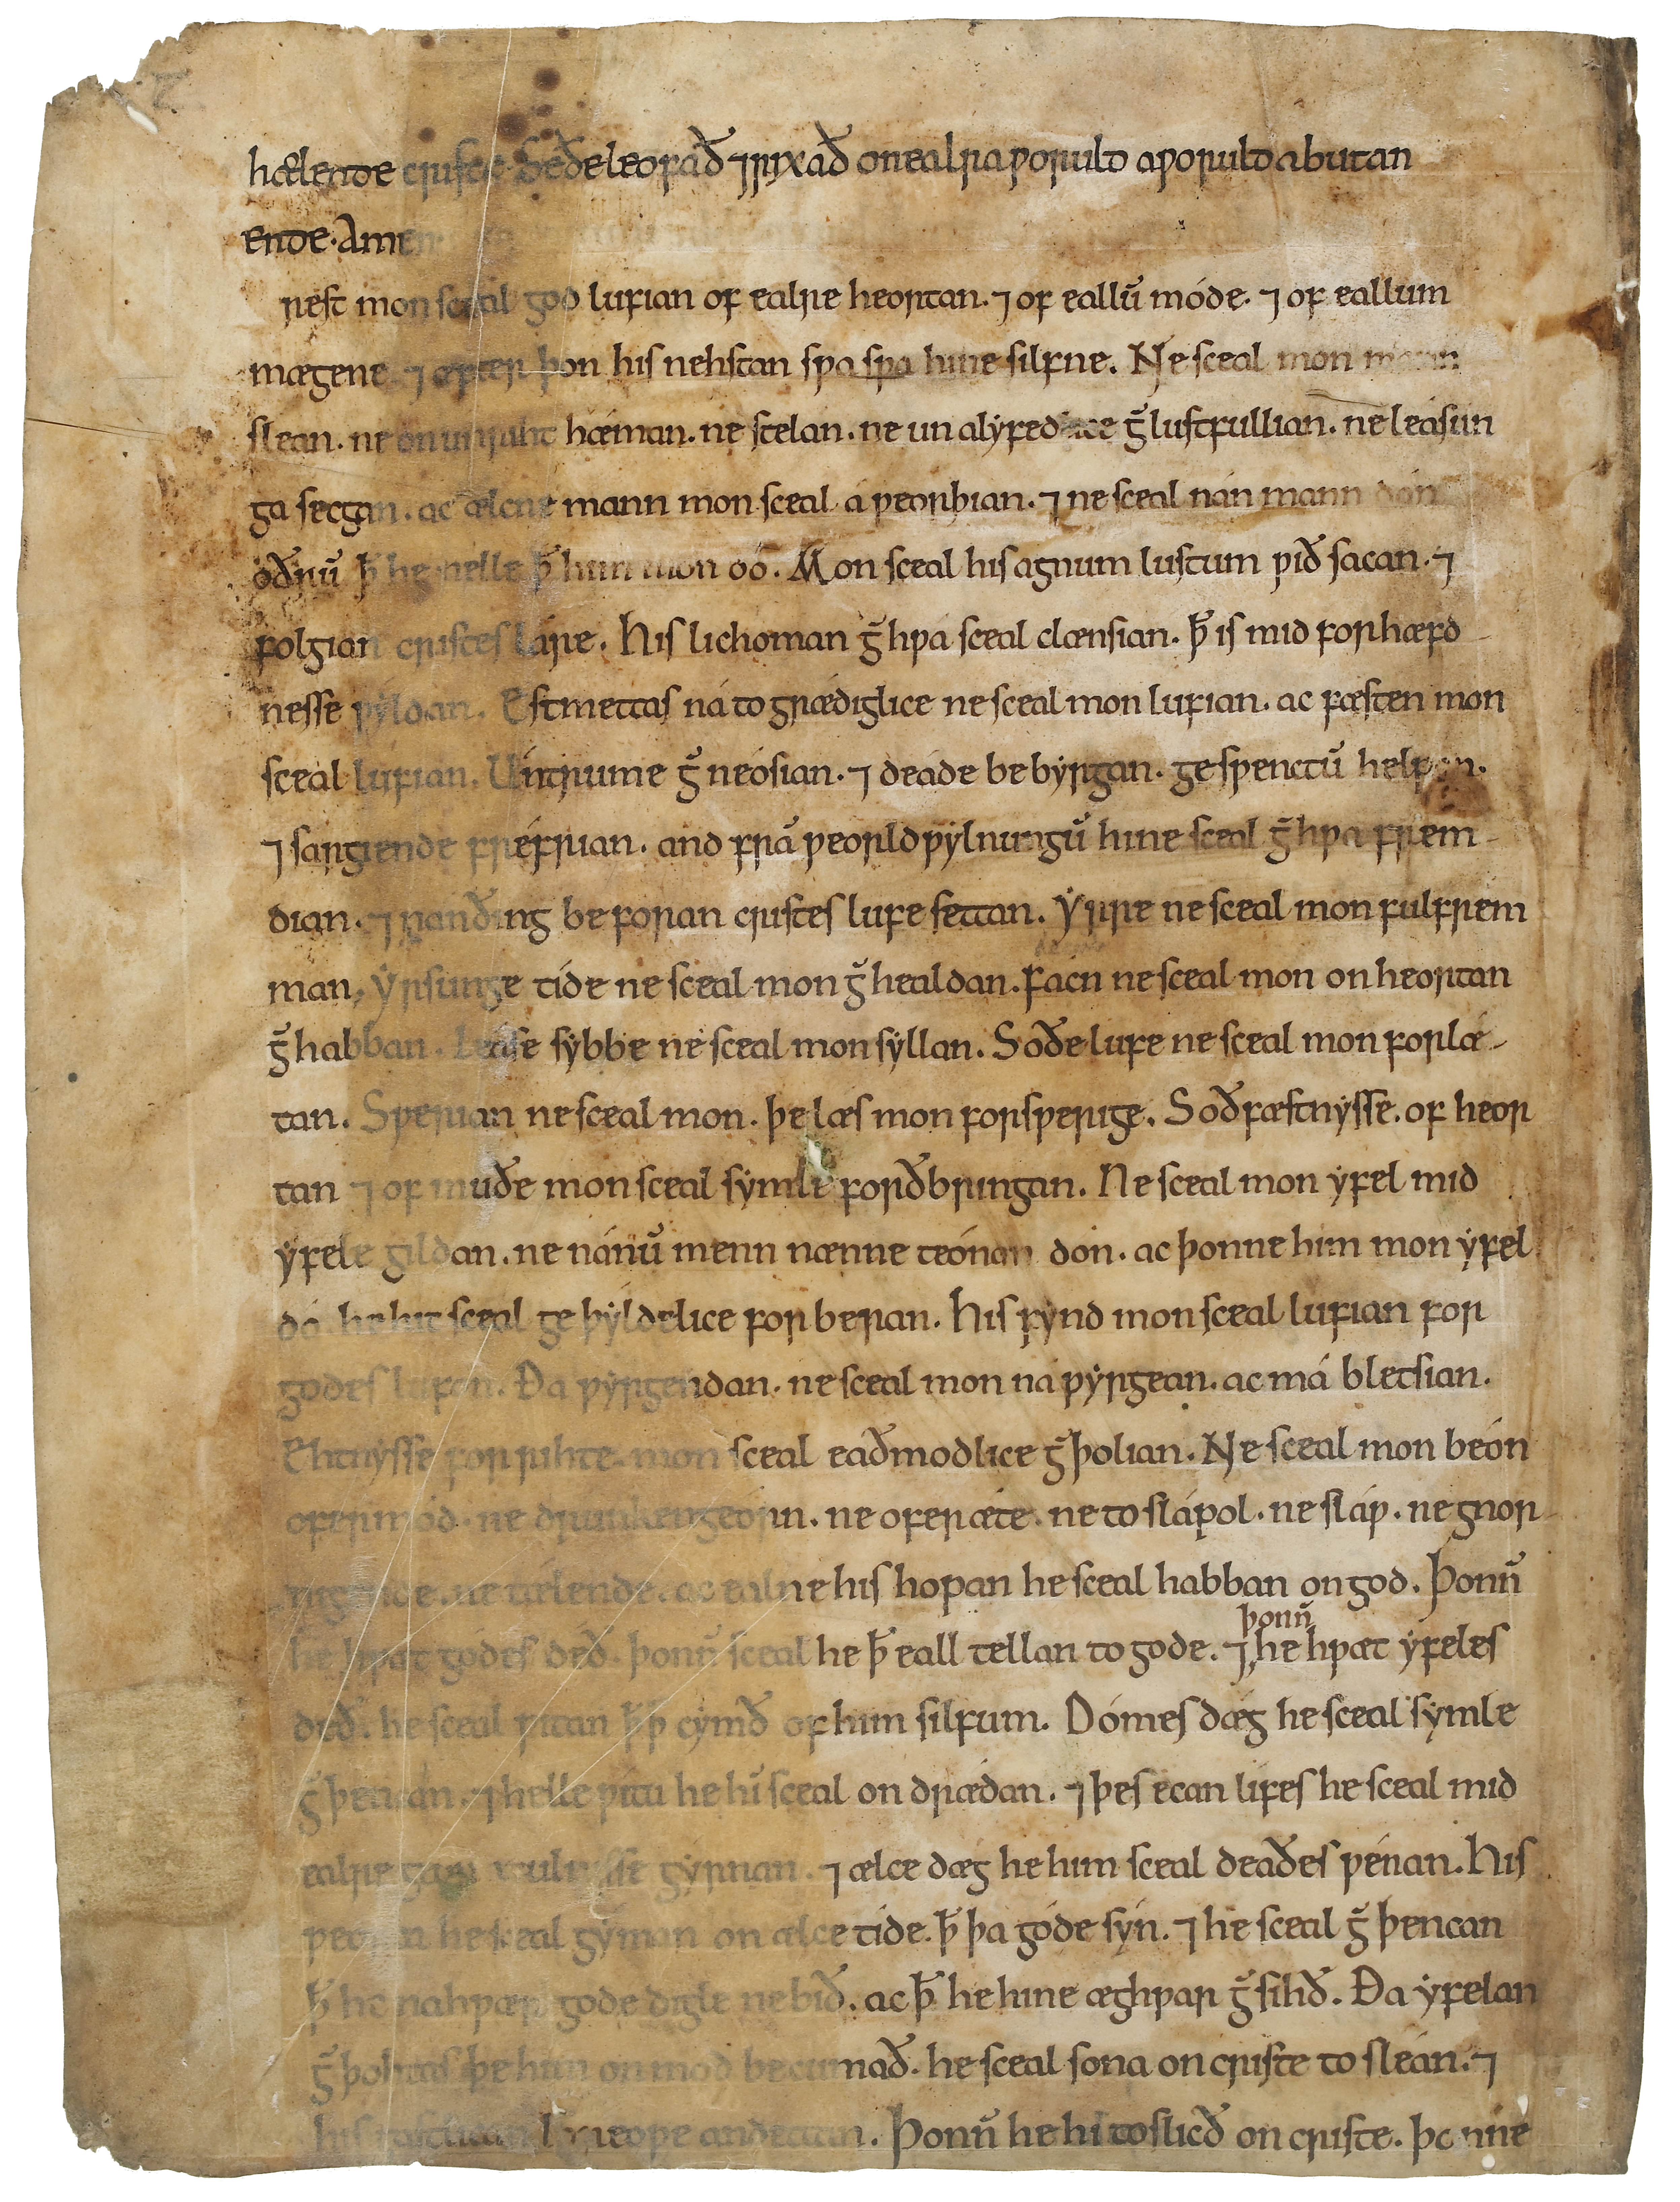 hælende criste Seðe leofað ⁊ rixað on ealra ƿoruld aƿoruld abutan
ende. Amen
rest mon sceal god lufian of ealre heortan. ⁊ of eallū móde. ⁊ of eallum
mægene ⁊ æfter þon his nehstan sƿa sƿa hine silfne. Ne sceal mon mann
slean. ne on unriht hǽman. ne stelan. ne un alẏfedlice ḡlustfullian. ne leásun
ga secgan. ac ælcne mann mon sceal á ƿeorþian. ⁊ ne sceal nán mann dón
oðrū ꝥ he nelle ꝥ him mon dó. Mon sceal his agnum lustum ƿið sacan. ⁊
folgian cristes láre. His lichoman ḡhƿá sceal clænsian. ꝥ is mid forhæfd
nesse ƿẏldan. Estmettas ná to grǽdiglice ne sceal mon lufian. ac fæsten mon
sceal lufian. Untrume ḡneósian. ⁊ deáde be bẏrgan. ge sƿenctū helpan.
⁊ sargiende fréfrian. and frā ƿeorldƿẏlnungū hine sceal ḡhƿa frem-
dian. ⁊ nanðing be foran cristes lufe settan. Ẏrre ne sceal mon fulfrem
man, ẏrsunge tíde ne sceal mon ḡhealdan. Fácn ne sceal mon on heortan
ḡhabban. Leáse sẏbbe ne sceal mon sẏllan. Soðe lufe ne sceal mon forlæ-
tan. Sƿerian ne sceal mon. þe læs mon forsƿerige. Soðfæstnẏsse. of heor
tan ⁊ of muðe mon sceal sẏmle forðbringan. Ne sceal mon ẏfel mid
ẏfele gildan. ne nánū menn nænne teónan dón. ac þonne him mon ẏfel
dó he hit sceal ge þẏldelice for beran. His fẏnd mon sceal lufian for
godes lufon. Ða ƿẏrgendan. ne sceal mon na ƿẏrgean. ac má bletsian.
Ehtnẏsse for rihte mon sceal eaðmodlice ḡþolian. Ne sceal mon beón
ofermód. ne druncengeorn. ne oferǽte. ne to slápol. ne sláƿ. ne gnor-
nigende. ne tǽlende. ac ealne his hopan he sceal habban on god. Þonn̄
he hƿæt gódes deð. þonn̄ sceal he ꝥ eall tellan to gode. ⁊ þonn̄ he hƿæt ẏfeles
deð. he sceal ƿitan ꝥ ꝥ cẏmð of him silfum. Dómes dæg he sceal sẏmle
ḡþencan. ⁊ helle ƿítu he hī sceal on drǽdan. ⁊ þes ecan lifes he sceal mid
ealre gẏrnan. ⁊ ælce dæg he him sceal deaðes ƿénan. His
ƿeorcan he sceal gẏman on ælce tíde. ꝥ þa góde sẏn. ⁊ he sceal ḡþencan
ꝥ he nahƿær gode digle ne bið. ac ꝥ he hine æghƿar ḡsihð. Ða ẏfelan
ḡþohtas þe him on mod becumað. he sceal sona on criste to sleán. ⁊
his andettan. Þonn̄ he hi tosliðð on criste. þonne